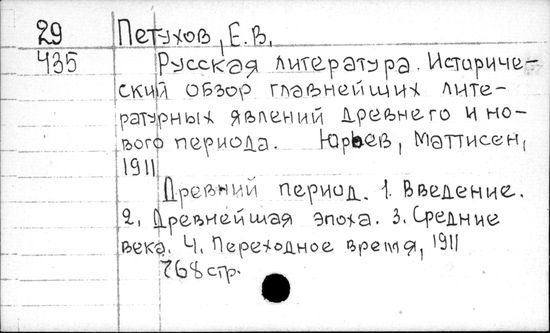 29 Петухов, Е.В.
435 Русская литература. Историче-
ский обзор главнейших лите-
ратурных явлений древнего и но-
вого периода. Юрьев, Маттисен,
1911
Древний период. 1. Введение.
2. Древнейшая эпоха. 3. Средние
века. 4. Переходное время, 1911
268 стр.